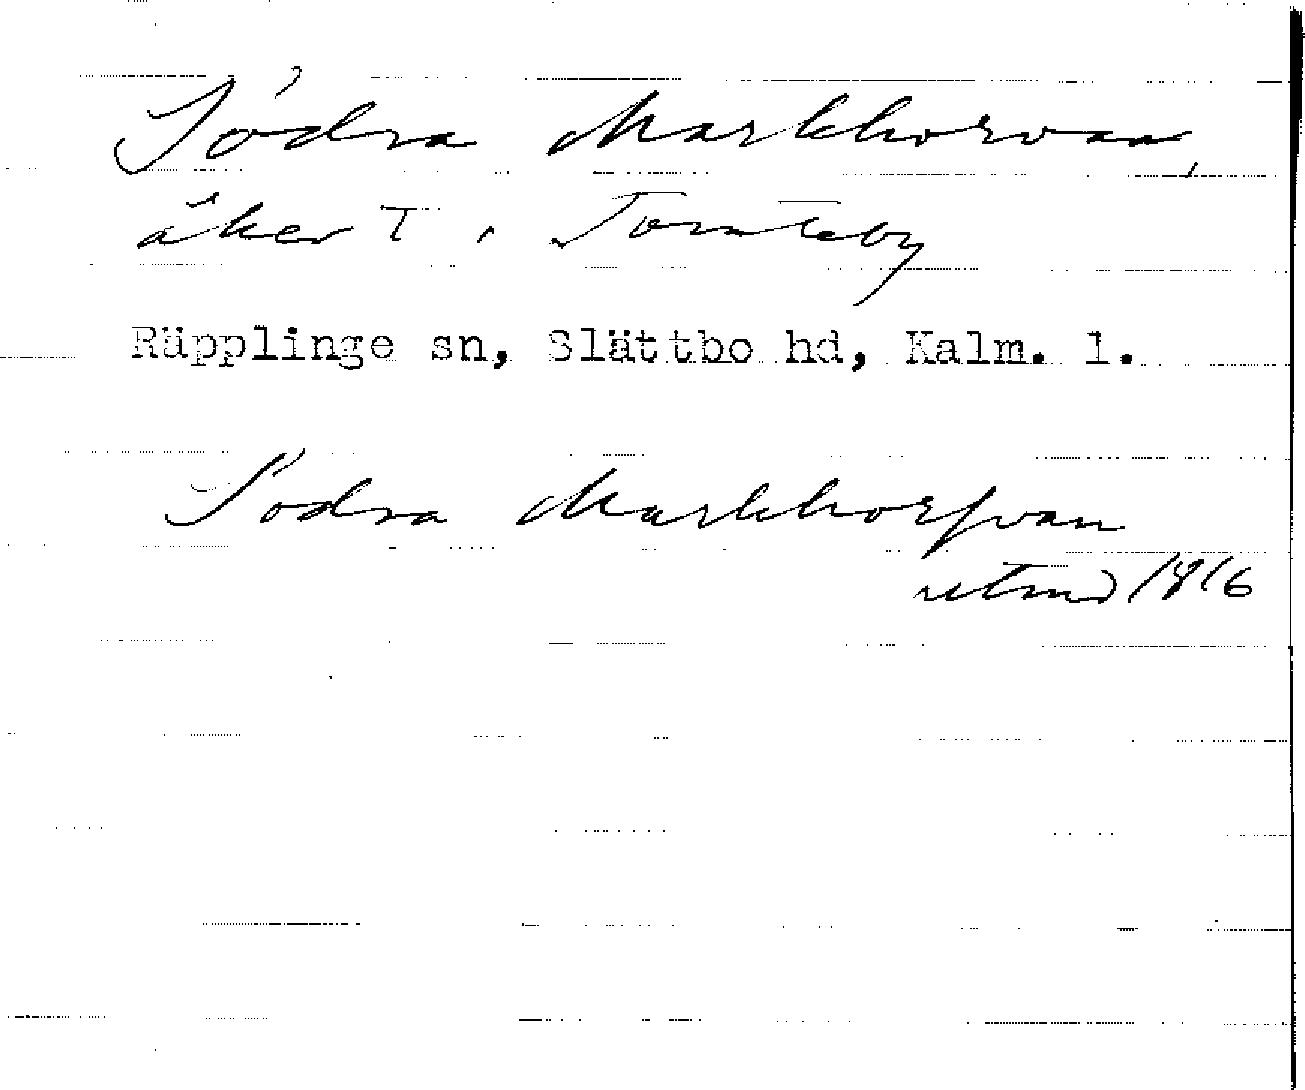 Södra Markhorvan,
åker T i Tomteby
Räpplinge sn, Slättbo hd, Kalm. l.
Södra Markhorfvan
1816